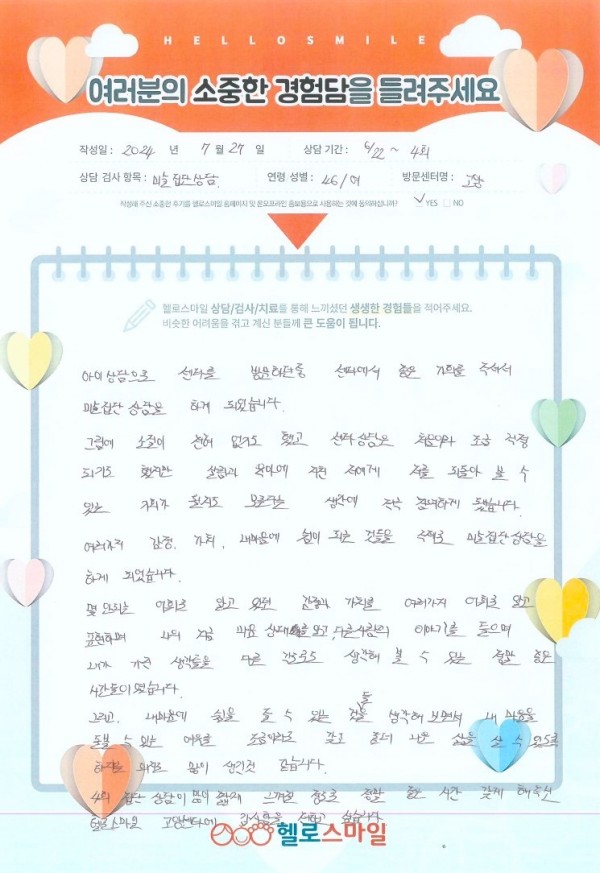 HELLOSMILE
여러분의 소중한 경험담을 들려주세요
작성일 : 2024 년 7 월 27 일 상담 기간 : 6/22 ~ 4회
상담 검사 항목 : 미술집단상담. 연령 성별 : 46/여 방문센터명 : 고양
작성해 주신 소중한 후기를 헬로스마일 홈페이지 및 온오프라인 홍보용으로 사용하는 것에 동의하십니까? ✓ YES □ NO
헬로스마일 상담/검사/치료를 통해 느끼셨던 생생한 경험들을 적어주세요.
비슷한 어려움을 겪고 계신 분들께 큰 도움이 됩니다.
아이 상담으로 센터를 방문하던중 센터에서 좋은 기회를 주셔서
미술집단 상담을 하게 되었습니다.
그림에 소질이 전혀 없기도 했고 집단상담은 처음이라 조금 걱정
되기도 했지만 살림과 육아에 지친 저에게 저를 되돌아 볼 수
있는 기회가 될지도 모른다는 생각에 적극 참여하게 됐습니다.
여러가지 감정, 가치, 내마음에 힘이 되는 것들을 주제로 미술집단상담을
하게 되었습니다.
몇 안되는 어휘로 알고 있던 감정과 가치를 여러가지 어휘로 알고
표현하며 나의 지금 마음 상태를 알고, 다른사람의 이야기를 들으며
내가 가진 생각들을 다른 각도로 생각해 볼 수 있는 정말 좋은
시간들이었습니다.
그리고, 내마음에 쉼을 줄 수 있는 것들을 생각해 보면서 내 마음을
돌볼 수 있는 여유를 조금이라도 갖고 좀더 나은 삶을 살 수 있도록
하자는 의지도 많이 생긴것 같습니다.
4회 집단 상담이 많이 짧게 느껴질 정도로 정말 좋은 시간 갖게 해주신
헬로스마일 고양센터에 감사함을 전하고 싶습니다
헬로스마일